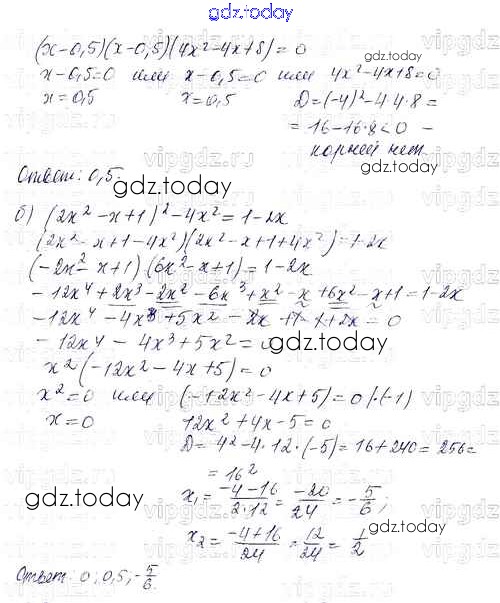 gdz.today
(x-0,5)(x-0,5)(4x²-4x+8)=0
x-0,5=0 или x-0,5=0 или 4x²-4x+8=0
x=0,5 x=0,5 D=(-4)²-4·4·8=
=16-16·8<0 -
корней нет
Ответ: 0,5.
gdz.today
б) (2x²-x+1)²-4x²=1-2x
(2x²-x+1-4x²)(2x²-x+1+4x²)=1-2x
(-2x²-x+1)(6x²-x+1)=1-2x
-12x⁴+2x³-2x²-6x³+x²-x+6x²-x+1=1-2x
-12x⁴-4x³+5x²-2x+1-1+2x=0
-12x⁴-4x³+5x²=0
gdz.today
x²(-12x²-4x+5)=0
x²=0 или (-12x²-4x+5)=0 |·(-1)
x=0 12x²+4x-5=0
D=4²-4·12·(-5)=16+240=256=
=16²
gdz.today
x₁=\frac{-4-16}{2·12}=\frac{-20}{24}=-\frac{5}{6};
x₂=\frac{-4+16}{24}=\frac{12}{24}=\frac{1}{2}
gdz.today
Ответ: 0; 0,5; -\frac{5}{6}.